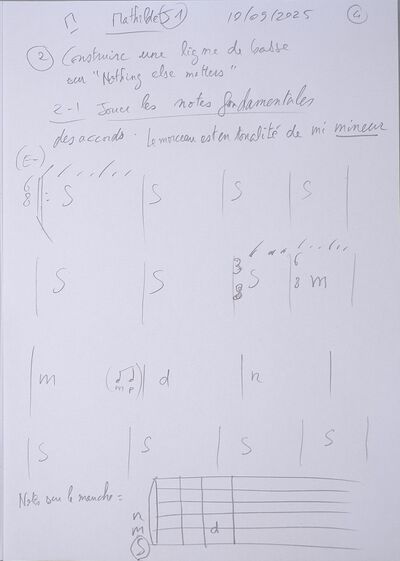 Mathilde S1 10/09/2025 4
2 Construire une ligne de basse
sur "Nothing else matters"
2-1 Jouer les notes fondamentales
des accords. Le morceau est en tonalité de mi mineur
(E-)
6 8 S S S S
S S 3 8 S 6 8 m
m (m p) d n
S S S S
Notes sur le manche =
n
m d
S